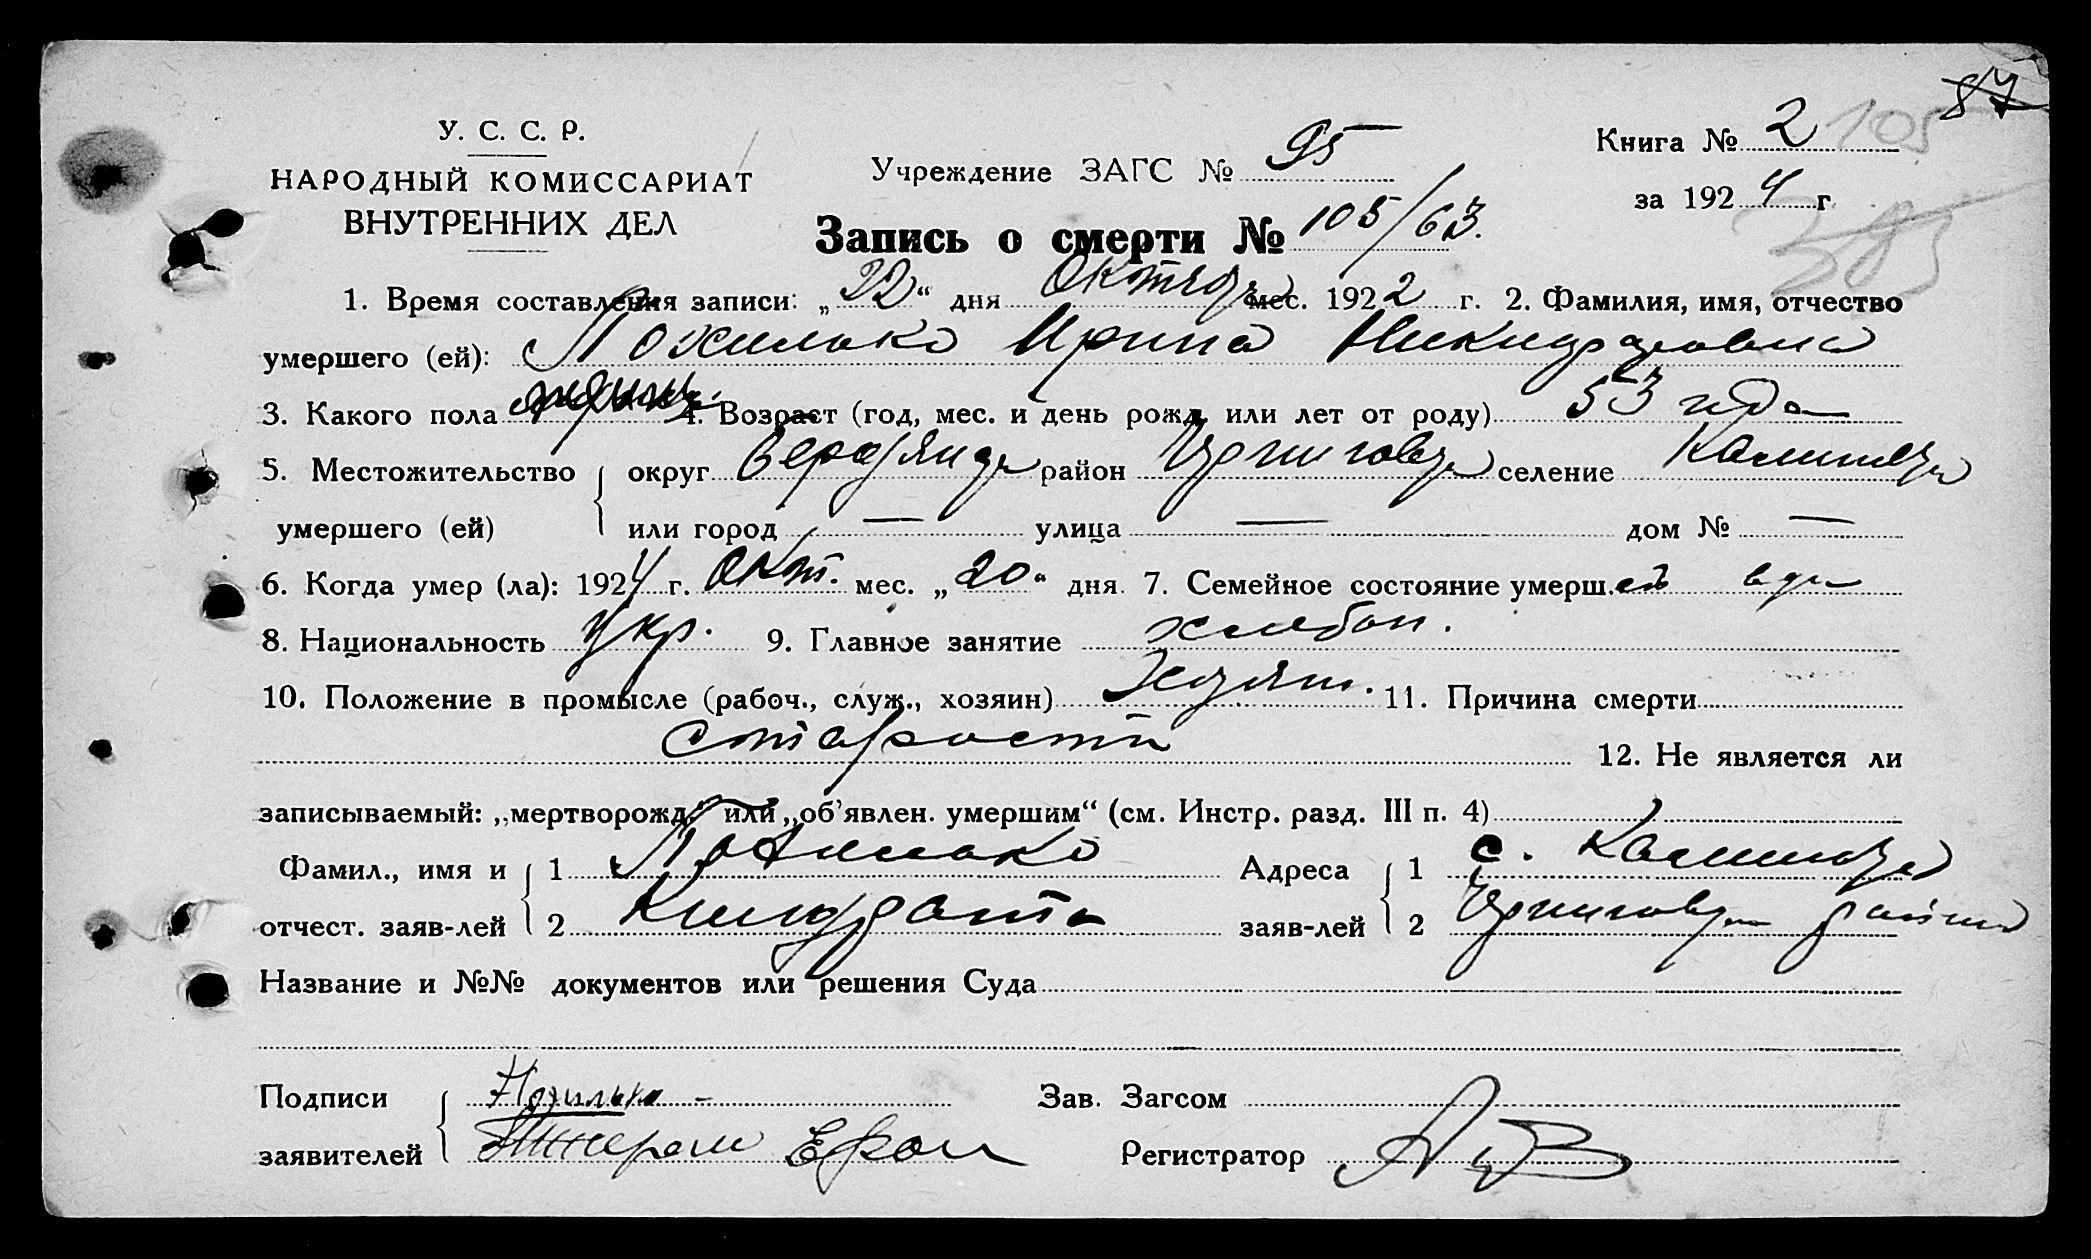 87
У. С. С. Р.
НАРОДНЫЙ КОМИССАРИАТ
ВНУТРЕННИХ ДЕЛ
Учреждение ЗАГС № 95
Книга № 2 105
за 1924 г.
385
Запись о смерти № 105/63.
1. Время составления записи: „22“ дня Октяб мес. 1922 г. 2. Фамилия, имя, отчество
умершего (ей): Похилько Ирина
3. Какого пола 4. Возраст (год, мес. и день рожд. или лет от роду) 53 года
5. Местожительство округ район селение
умершего (ей) или город — улица — дом № —
6. Когда умер (ла): 1924 г. Окт. мес. „20“ дня. 7. Семейное состояние умерш.ей вда
8. Национальность укр. 9. Главное занятие хлебоп.
10. Положение в промысле (рабоч., служ., хозяин) 11. Причина смерти
старости
12. Не является ли
записываемый: „мертворожд.“ или „об'явлен. умершим“ (см. Инстр. разд. III п. 4)
Фамил., имя и 1 Похилько Адреса 1 с.
отчест. заяв-лей 2 заяв-лей 2 района
Название и №№ документов или решения Суда
Подписи Похилько - Зав. Загсом
заявителей Регистратор